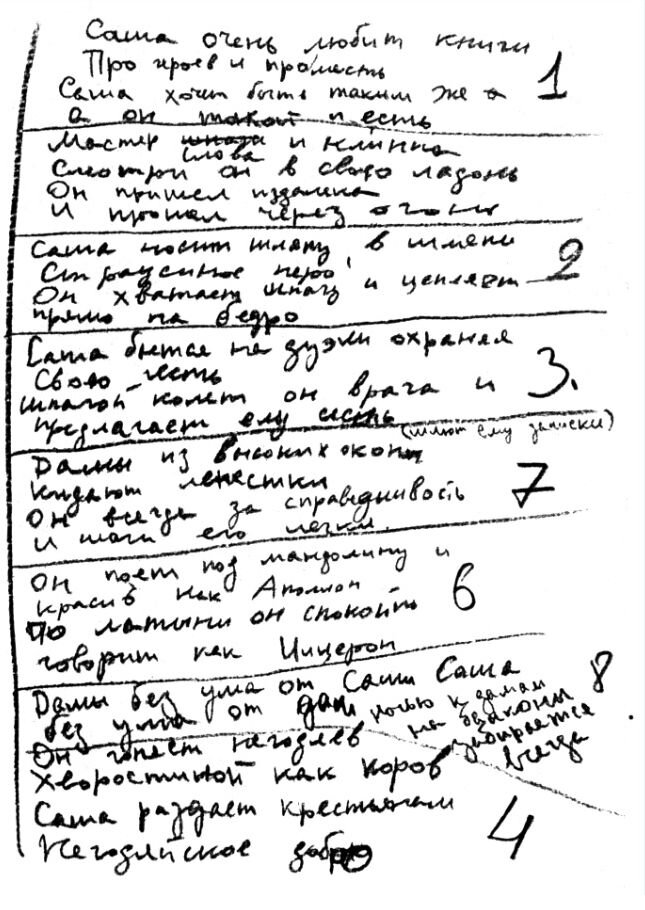 Саша очень любит книги
Про героев и про месть
Саша хочет быть таким же
а он такой и есть
1
Мастер шпаги и клинка
слова
Смотрит он в свою ладонь
Он пришел издалека
И прошел через огонь
Саша носит шляпу, в шляпе
Страусиное перо,
Он хватает шпагу и цепляет
прямо на бедро
2
Саша бьется на дуэли охраняя
Свою честь
шпагой колет он врага и
предлагает ему сесть
3.
(шлют ему записки)
Дамы из высоких окон
кидают лепестки
Он всегда за справедливость
и шаги его легки.
7
Он поет под мандолину и
красив как Аполлон
По латыни он спокойно
говорит как Цицерон
6
Дамы без ума от Саши Саша
без ума от дам
ночью к дамам
на балконы
забирается
всегда
8
Он гоняет негодяев
Хворостиной как коров
Саша раздает крестьянам
Негодяйское добро
4